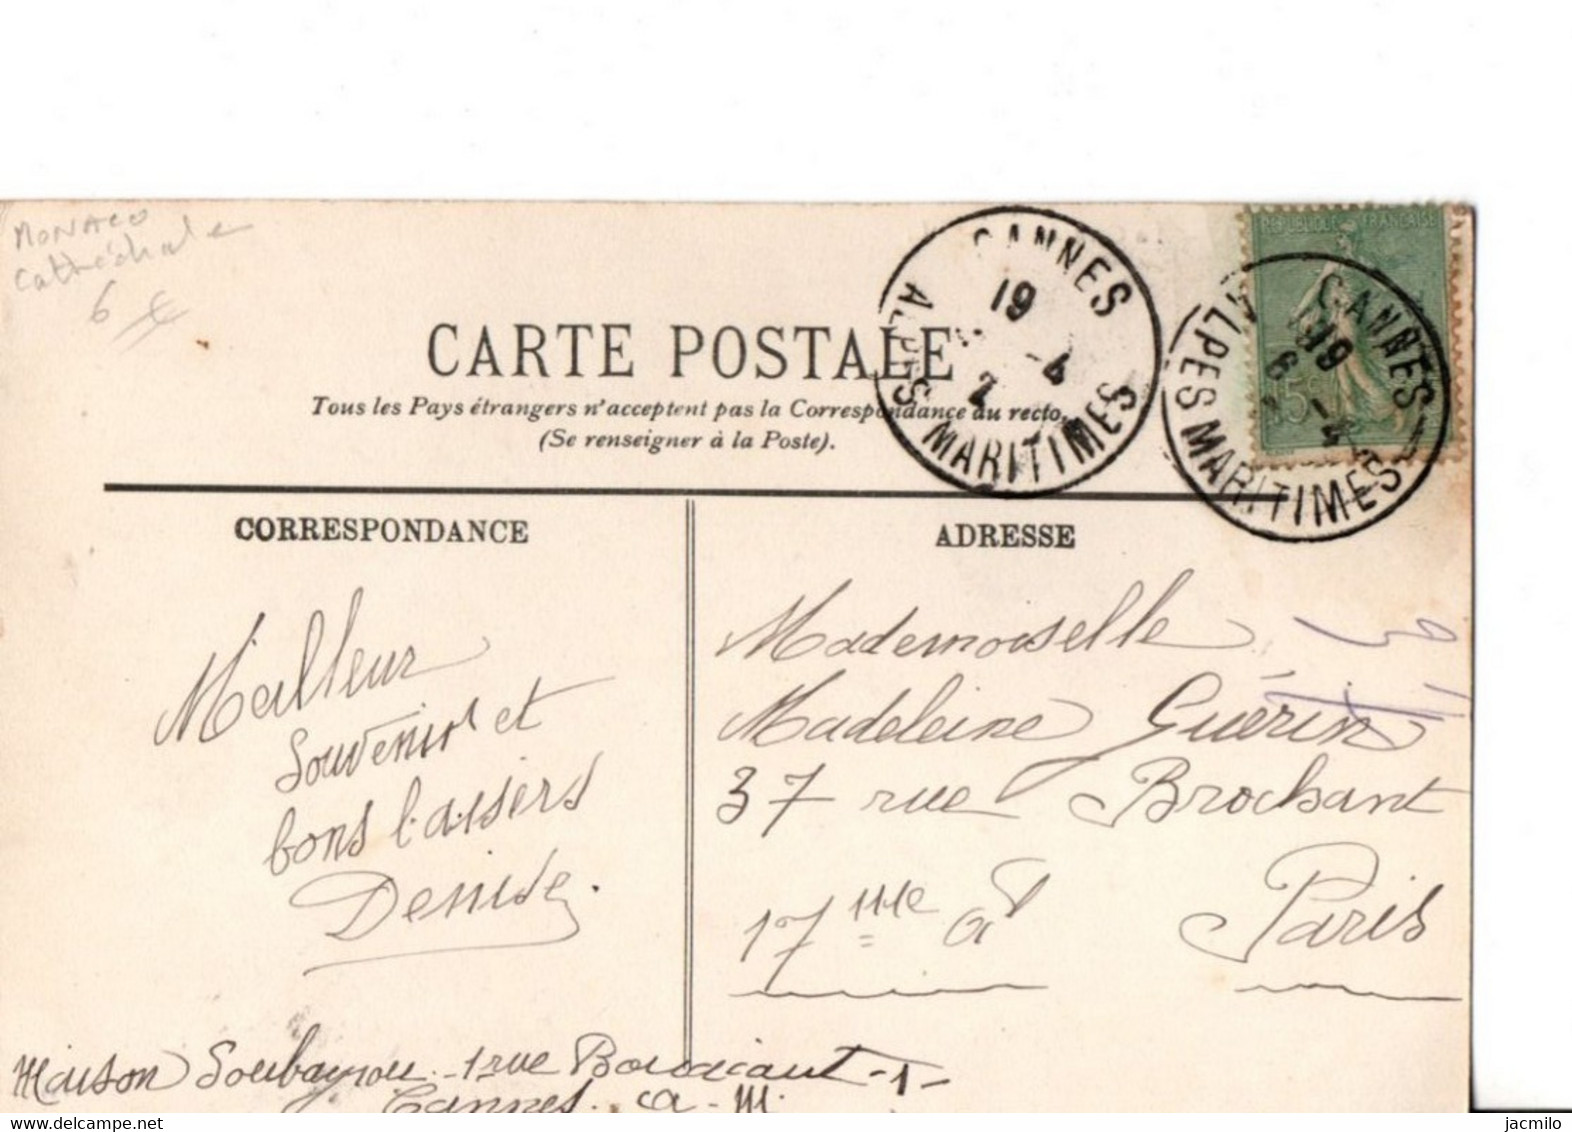 MONACO
Cathédrale
6 €
CARTE POSTALE
Tous les Pays étrangers n'acceptent pas la Correspondance au recto.
(Se renseigner à la Poste).
CANNES
19 -4
2
ALPES MARITIMES
REPUBLIQUE FRANÇAISE
15c
CANNES
19 -4
ALPES MARITIMES
CORRESPONDANCE
Meilleur
Souvenir et
bons baisers
Denise.
ADRESSE
Mademoiselle
Madeleine Guérin
37 rue Brochant
17me ar Paris
Maison Soubayrou - 1 rue -1-
Cannes. a-m.
jacmilo